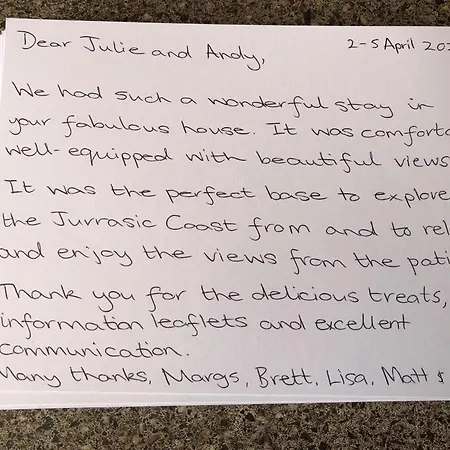 Dear Julie and Andy,
2-5 April 202
We had such a wonderful stay in
your fabulous house. It was comforta
well-equipped with beautiful views
It was the perfect base to explore
the Jurrasic Coast from and to rel
and enjoy the views from the pati
Thank you for the delicious treats,
information leaflets and excellent
communication.
Many thanks, Margs, Brett, Lisa, Matt &